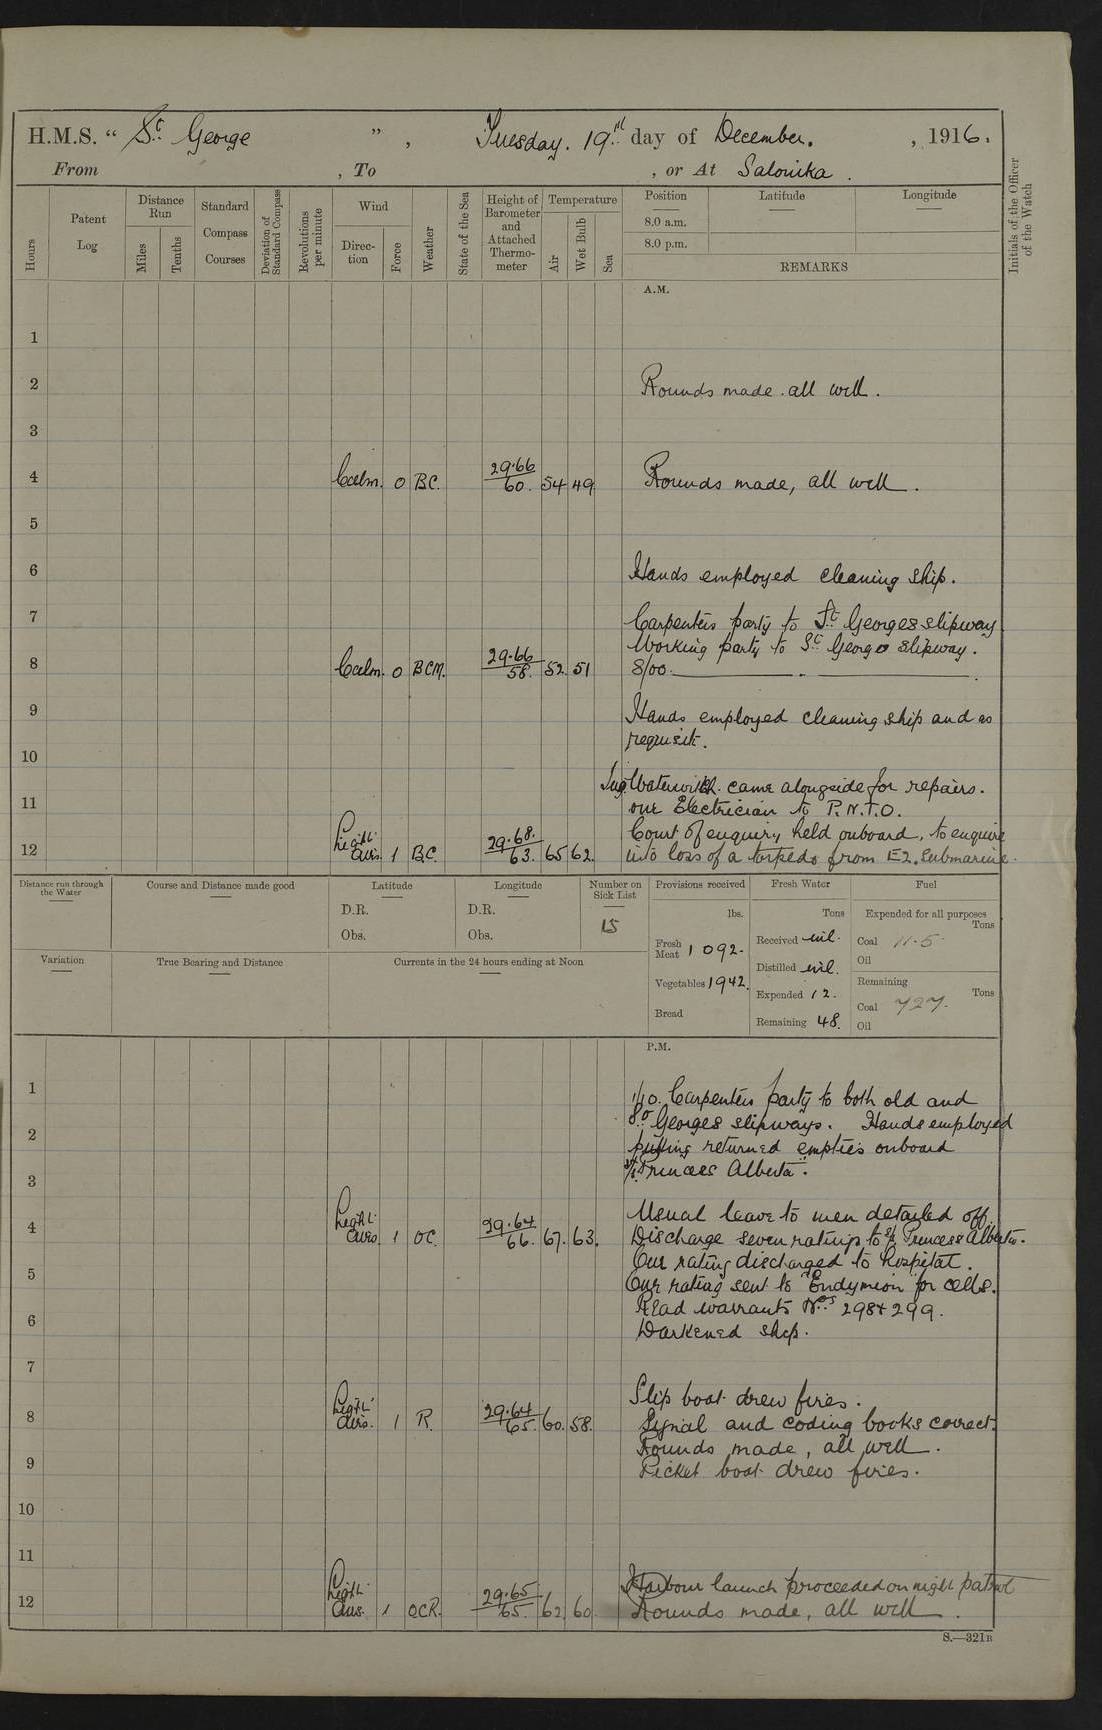 H.M.S. “ St. George ” , Tuesday. 19th day of December. , 1916.
From , To , or At Salonika .
Hours
Patent Log
Distance Run
Miles
Tenths
Standard Compass Courses
Deviation of Standard Compass
Revolutions per minute
Wind
Direction
Force
Weather
State of the Sea
Height of Barometer and Attached Thermometer
Temperature
Air
Wet Bulb
Sea
Position Latitude Longitude
8.0 a.m.
8.0 p.m.
REMARKS
Initials of the Officer of the Watch
A.M.
1
2 Rounds made. all well.
3
4 Calm. 0 BC. 29.66/60. 54 49 Rounds made, all well.
5
6 Hands employed cleaning ship.
7 Carpenters party to St. Georges slipway
Working party to St. George slipway.
8 Calm. 0 BCM. 29.66/58. 52. 51 8/00.
9 Hands employed cleaning ship and as
requisite.
10
Tug. Waterwitch. came alongside for repairs.
11 one Electrician to P.N.T.O.
Court of enquiry held onboard, to enquire
12 Light airs. 1 BC. 29.68./63. 65 62. into loss of a torpedo from E2. Submarine.
Distance run through the Water
Course and Distance made good
Latitude
D.R.
Obs.
Longitude
D.R.
Obs.
Number on Sick List
15
Provisions received
lbs.
Fresh Meat 1092.
Vegetables 1942.
Bread
Fresh Water
Tons
Received nil.
Distilled nil.
Expended 12.
Remaining 48.
Fuel
Expended for all purposes
Tons
Coal 11.5
Oil
Remaining
Tons
Coal 727.
Oil
Variation
True Bearing and Distance
Currents in the 24 hours ending at Noon
P.M.
1 1/10. Carpenters party to both old and
St. Georges slipways. Hands employed
2 putting returned empties onboard
3 Princess Alberta".
4 Light airs. 1 OC. 29.64/66. 67. 63. Usual leave to men detailed off.
Discharge seven ratings to S/S Princess Alberta.
One rating discharged to Hospital.
5 One rating sent to "Endymion" for cells.
Read warrants Nos. 298 & 299.
6 Darkened ship.
7
Slip boat drew fires.
8 Light airs. 1 R. 29.64/65. 60. 58. Signal and coding books correct.
Rounds made, all well.
9 Picket boat drew fires.
10
11
Harbour launch proceeded on night patrol
12 Light airs. 1 OCR. 29.65/65. 62. 60. Rounds made, all well.
S.—321B